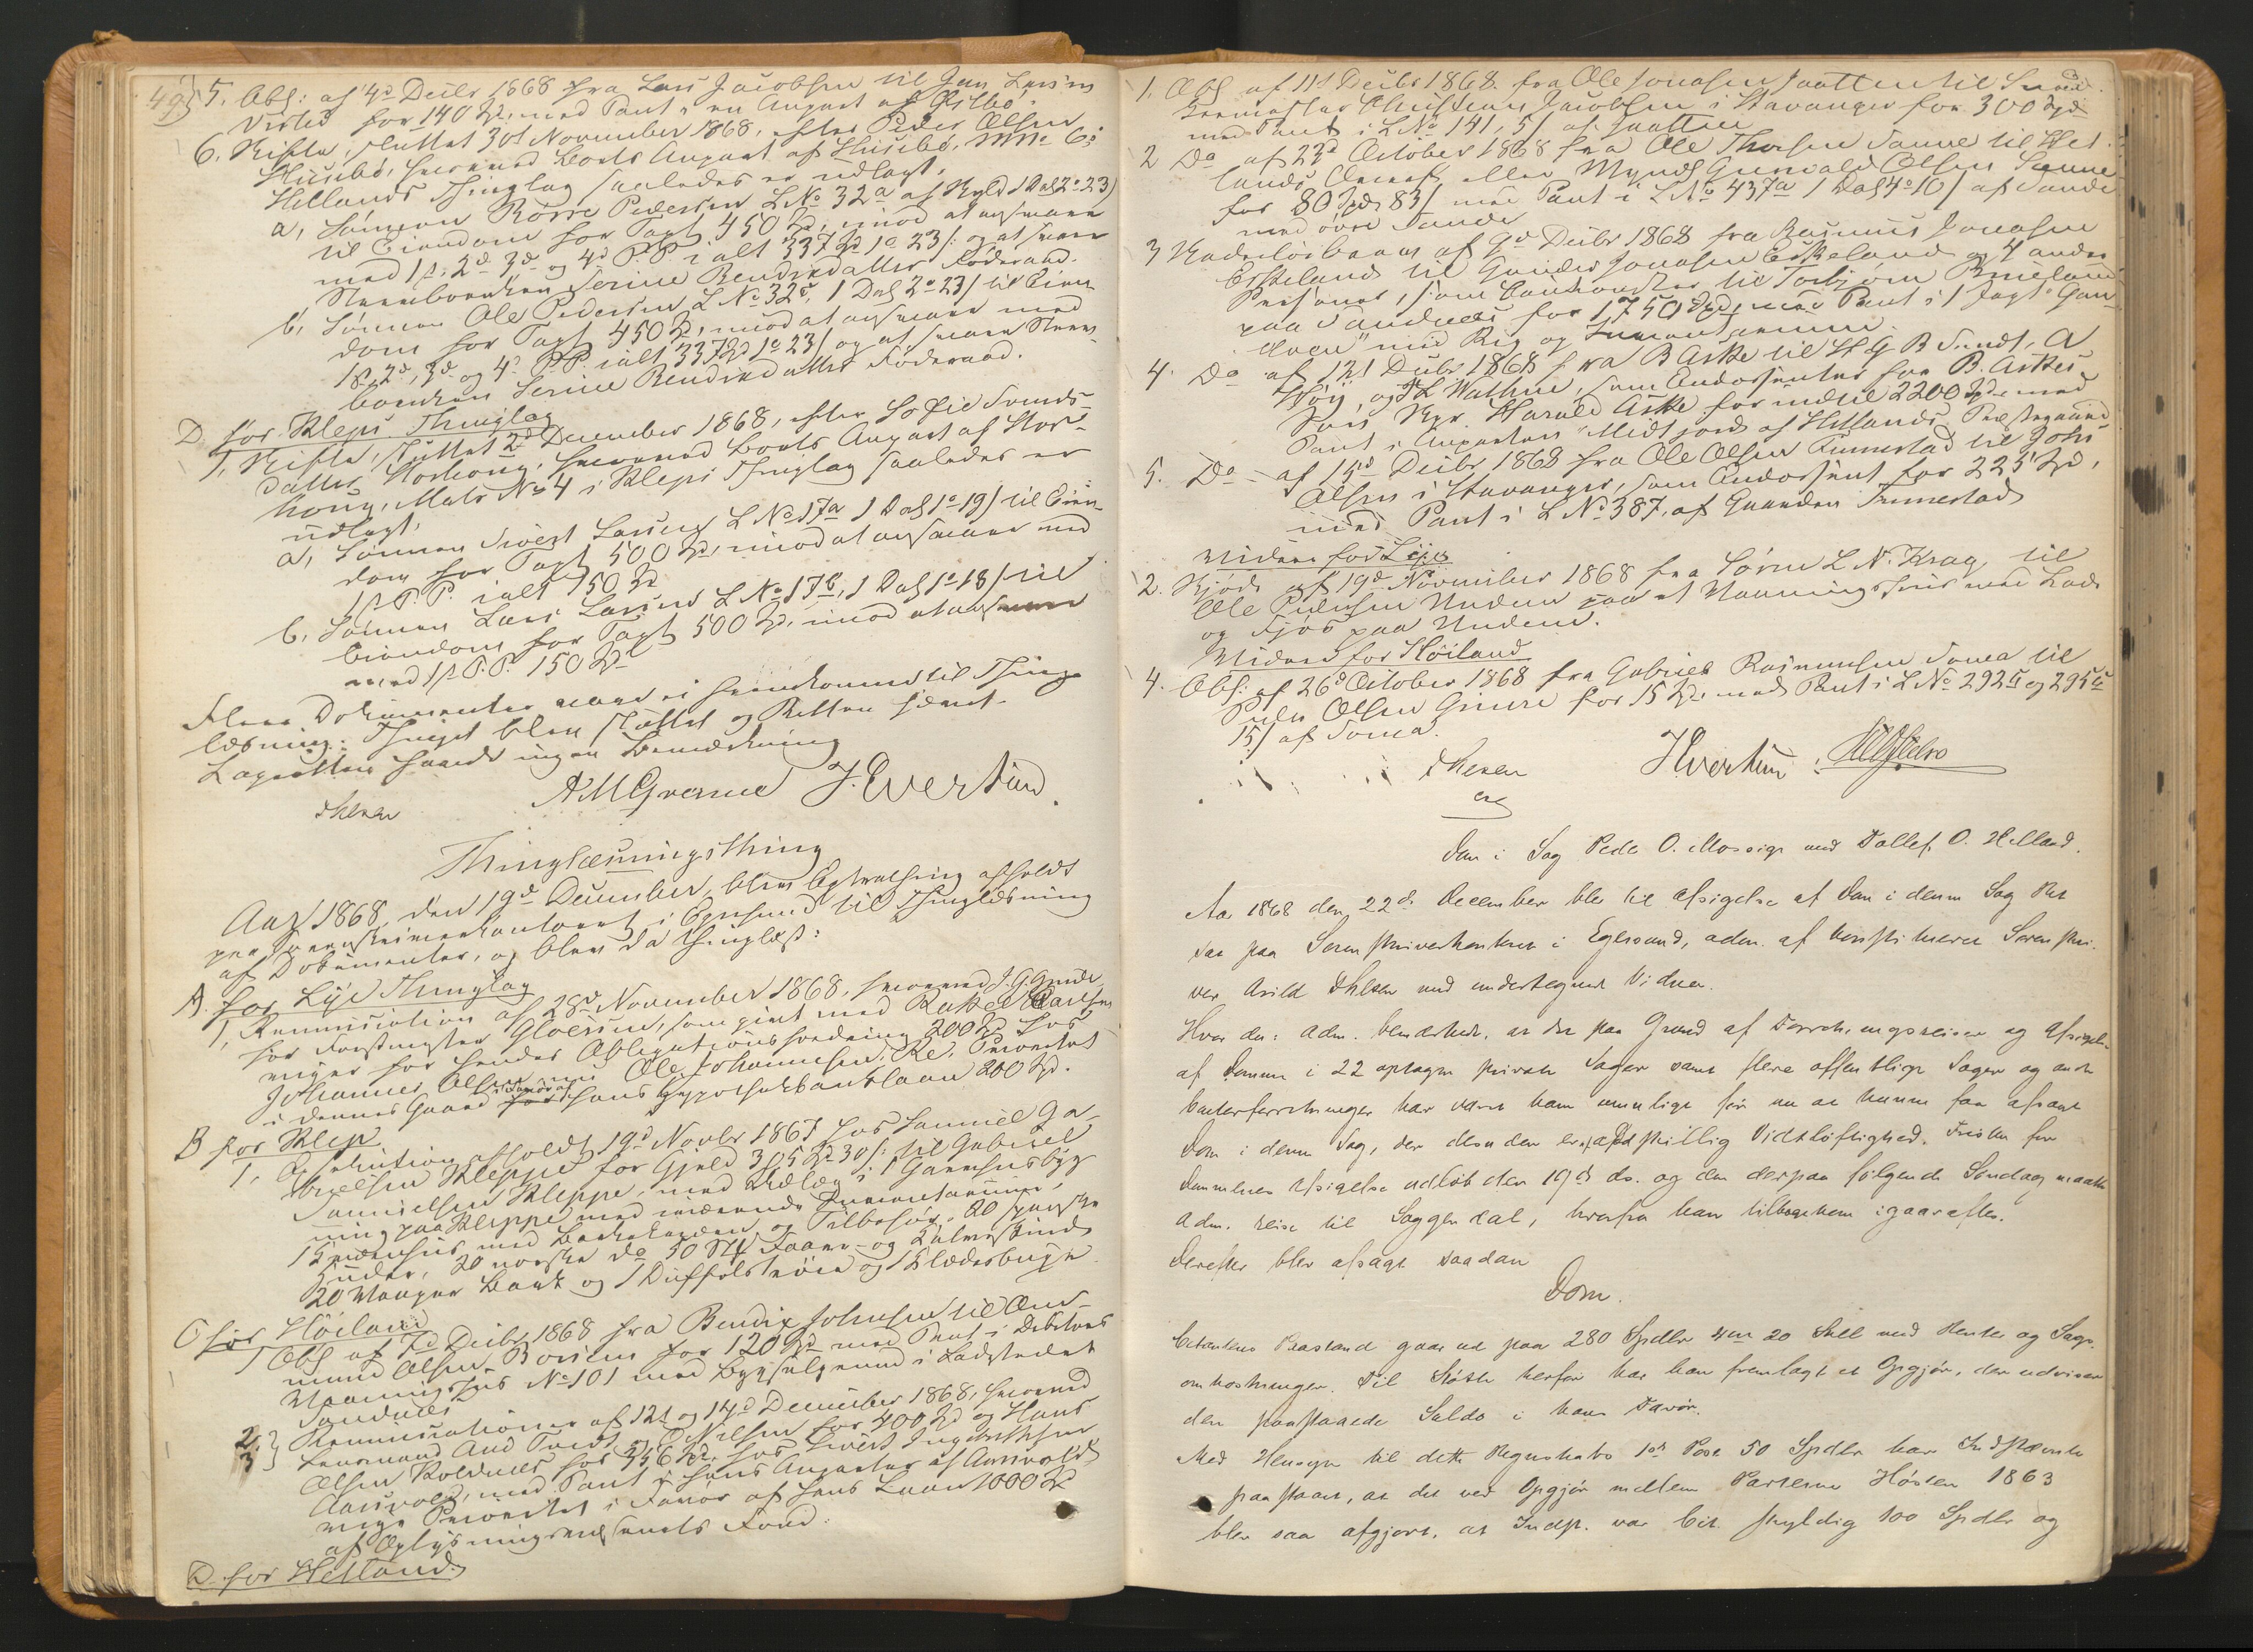 49
5. Obl: af 4d Decbr 1868 fra Lars Jacobsen til Jan Larsen
Vistad for 140 Spd, med Pant i en Anpart af
6. Skifte, sluttet 30t November 1868, efter Peder Olsen
Husebø, hvorved Boets Anpart af Husebø, Mtr No 6 i
Hetlands Thinglag saaledes er udlagt,
a, Sønnen Børre Pedersen L No 32a af Skyld 1 Dal 2o 23/
til Eiendom for Taxt 450 Spd, imod at udsvare
med 1st, 2d 3d og 4d P.P. ialt 337 Spd 1o 23/: og at svare
Stervboenken Serine Bendixdatter Føderaad.
b, Sønnen Ole Pedersen L No 32c, 1 Dal 2o 23/ til Eien-
dom for Taxt 450 Spd, imod at udsvare med
1st, 2d, 3d og 4d P.P. ialt 337 Spd 1o 23/ og at svare Sterv-
boenken Serine Bendixdatter Føderaad.
D for Kleps Thinglag
1, Skifte, sluttet 2d December 1868, efter Sofie Svends-
datter Storhoug, hvorved Boets Anpart af Stor-
houg, Matr No 4 i Kleps Thinglag saaledes er
udlagt,
a, Sønnen Sivert Larsen L No 17a 1 Dal 1o 19/ til Eien-
dom for Taxt 500 Spd, imod at udsvare med
1st P.P. ialt 150 Spd
b, Sønnen Lars Larsen L No 17b, 1 Dal 1o 18/ til
Eiendom for Taxt 500 Spd, imod at udsvare
med 1st P.P. 150 Spd
Flere Dokumenter vare ei fremkomne til Thing-
læsning. Thinget blev sluttet og Retten hævet.
Lagretten havde ingen Bemærkning
Ihlen A M Grosine J. Evertsen
Thinglæsningsthing
Aar 1868, den 19d December, blev Extrathing afholdt
paa Sorenskriverkontoret i Egersund til Thinglæsning
af Dokumenter, og blev da thinglæst:
A. for Lye Thinglag
1, Renunciation af 28d November 1868, hvorved J. G. Grude
for Forstmester Gløersen, som gift med Rakel Carlsen
viger for hendes Obligationsfordring 200 Spd hos
Johannes Olsen Ole Johannesen, Re, Prioritet
i dennes Gaard i Favør af hans Hypothekbanklaan 200 Spd.
B for Klep
1, Exekution afholdt 19d Novbr 1867 hos Samuel Ga-
brielsen Kleppe for Gjeld 305 Spd 30/: til Gabriel
Samuelsen Kleppe, med Udlæg i 1 Garverisbyg-
ning paa Kleppe med iværende Inventarium,
1 med Barkekarden og Tilbehør, 20 spanske
Huder, 20 norske do 50 Stk Faare- og Kalveskind
20 Vaager Bark og 1 Duffelstrøie og 1 Klædesbuxe.
C for Høiland
1 Obl af 7d Decbr 1868 fra Bendix Johnsen til Aad-
mund Olsen Borsim for 120 Spd med Pant i Debitors
Vaaningshus No 101 med Byxselgrund i Ladestedet
Sandnæs
2 } Renunciationer af 12t og 14d December 1868, hvorved
3 } Lensmand Aad Tvedt og O Nilsen for 400 Spd og Hans
Olsen Koldnæs for 556 Spd hos Sivert Ingebrethsen
Aarsvold, med Pant i hans Anparter af Aarsvold,
viger Prioritet i Favør af hans Laan 1000 Spd
af Oplysningsvæsenets Fond.
D. for Hetland.
1, Obl af 11t Decbr 1868. fra Ole Jonasen Jaatten til
Christian Jacobsen i Stavanger for 300 Spd
med Pant i L No 141, 5/ af Jaatten
2 Do af 23d October 1868 fra Ole Thorsen Sanne til Het-
lands eller Mynds Grunvald Olsen Sanne
for 80 Spd 83/ med Pant i L No 437a 1 Dal 4o 10/ af Sande
med øvre Sande
3 Skadesløsbrev af 9d Decbr 1868 fra Rasmus Jonasen
Eskeland til Gunder Jonasen Eskeland og 4 andre
Personer, som Cautionister til Torbjørn Brueland
paa Sandnæs for 1750 Spd, med Pant i 1 Jagt "Gan-
" med Rig og Inventarium.
4. Do af 12t Decbr 1868 fra B Aske til St G B Sundt, A
Høy, og T L Wathne, som Endossenter for B. Askes
Søn Skpr. Harald Aske for indtil 2200 Spd, med
Pant i Anparten "Midtjord" af Hetlands Præstegaard
5. Do - af 15d Decbr 1868 fra Ole Olsen Tunnestad til John
Olsen i Stavanger, som Endossent for 225 Spd,
med Pant i L No 387, af Gaarden Tunnestad
Videre for Lye
2. Skjøde af 19d November 1868 fra Søren L N. Krag til
Ole Pedersen Undem paa et Vaaningshus med Lade
og Fjøs paa Undem.
Videre for Høiland
4. Obl: af 26d October 1868 fra Gabriel Rasmussen Soma til
Peder Olsen Grimre for 15 Spd, med Pant i L No 292 og 295
15/ af Soma.
Ihlen J Evertsen
Dom i Sag Peder O. Mossige mod Tollef O. Helland.
Aar 1868 den 22de December blev til Afsigelse af Dom i denne Sag Ret
sat paa Sorenskriverkontoret i Egersund, adm. af konstitueret Sorenskri-
ver Arild Ihlen med undertegnede Vidner.
Hvor da: Adm. bemærkede, at det paa Grund af Forretningsreiser og Afsigelse
af Domme i 22 optagne private Sager samt flere offentlige Sager og andre
Contorforretninger har været ham umuligt før nu at kunne faa afsagt
Dom i denne Sag, der desuden er af adskillig Vidtløftighed. Fristen for
Dommens Afsigelse udløb den 19de ds. og den derpaa følgende Søndag maatte
Adm. reise til Soggendal, hvorfra han tilbagekom igaaraftes.
Derefter blev afsagt saadan
Dom.
Citantens Paastand gaar ud paa 280 Spdlr 4 20 Skill med Renter og Sags-
omkostninger. Til Støtte herfor har han fremlagt et Opgjør, der udviser
den paastaaede Saldo i hans Favør.
Med Hensyn til dette Regnskabs 1ste Post 50 Spdlr har Indstævnte
paastaaet, at det ved Opgjør mellem Parterne Høsten 1863
blev saa afgjort, at Indst. var Cit. skyldig 100 Spdlr og